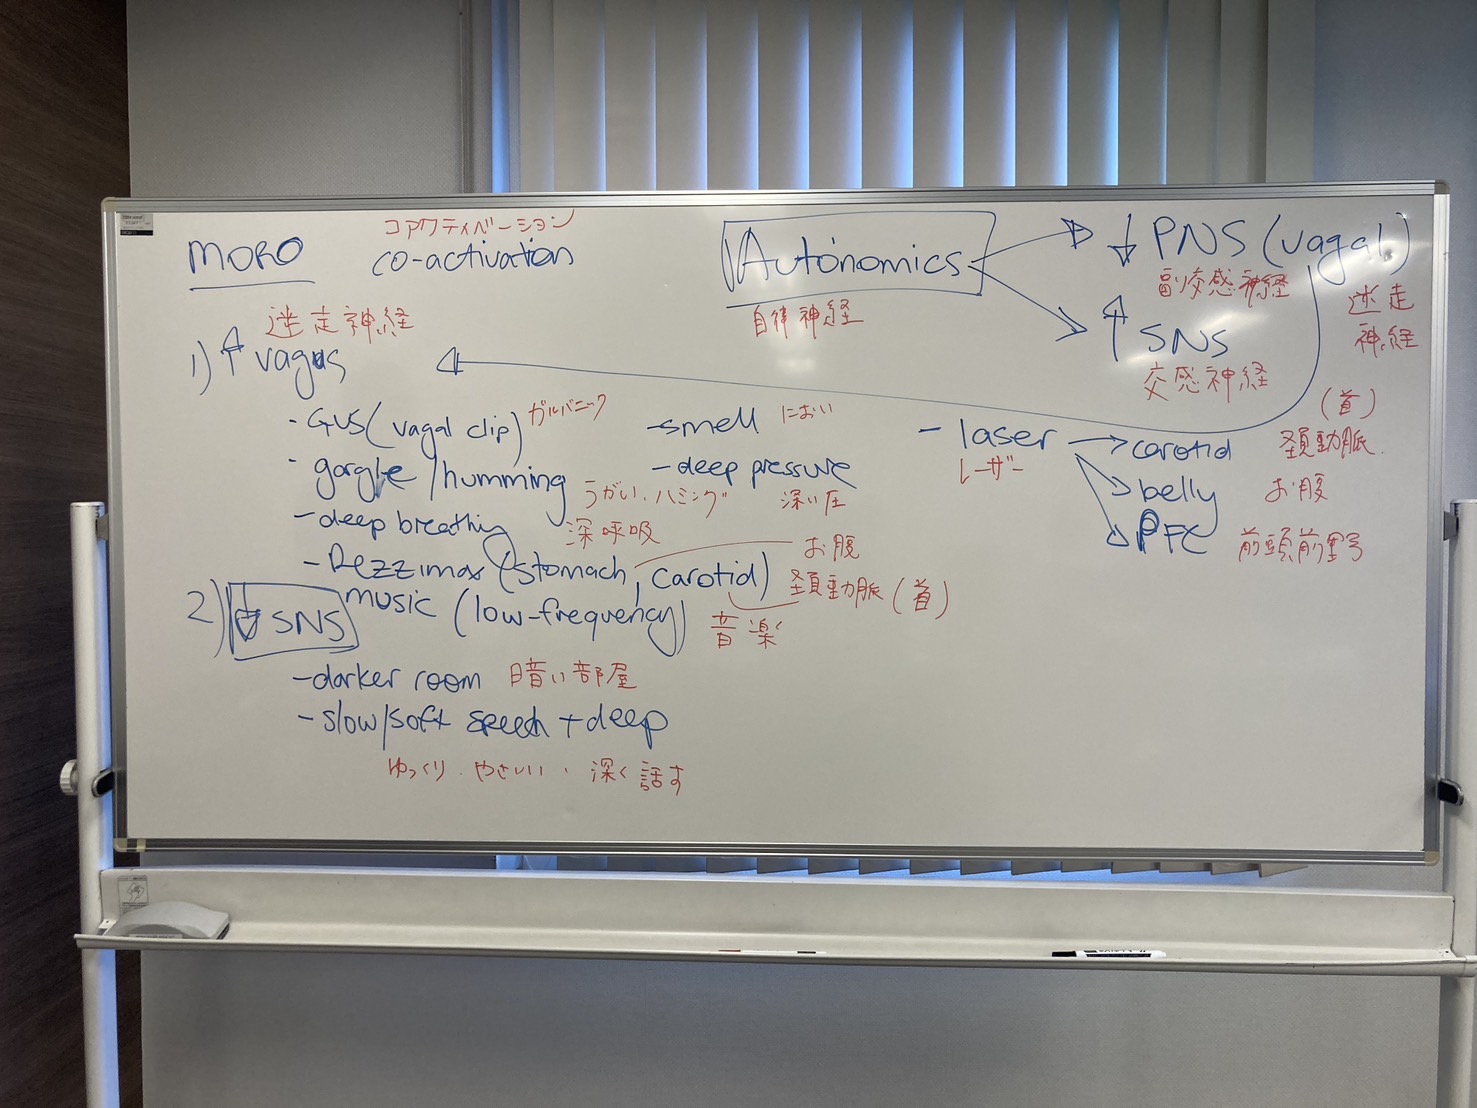 コアクティベーション
MORO co-activation
迷走神経
1) ↑ vagus
- GVS (vagal clip) ガルバニック
- gargle/humming うがい、ハミング
- deep breathing 深呼吸
- Rezzimax (stomach, carotid)
お腹
頚動脈（首）
music (low-frequency) 音楽
- smell におい
- deep pressure
深い圧
2) ↓ SNS
- darker room 暗い部屋
- slow/soft speech + deep
ゆっくり・やさしい・深く話す
Autonomics
自律神経
↓ PNS (vagal)
副交感神経
迷走
神経
↑ SNS
交感神経
- laser
レーザー
carotid
（首）
頚動脈
belly お腹
PFC 前頭前野